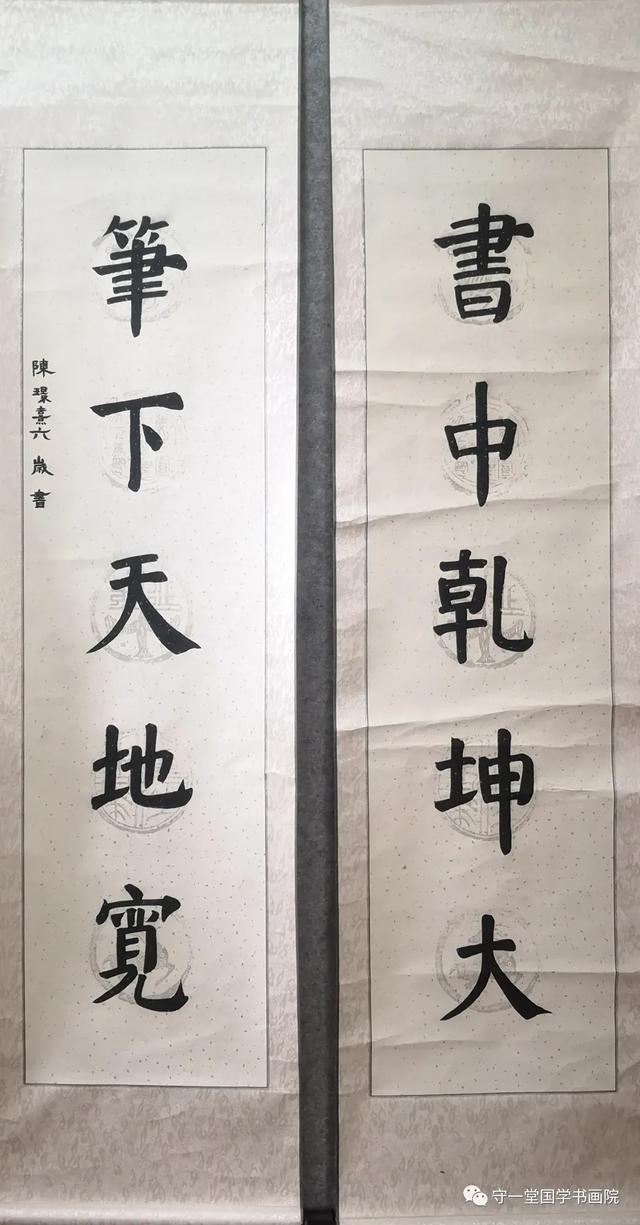 書中乾坤大
筆下天地寬
陳環熹六歲書
守一堂国学书画院